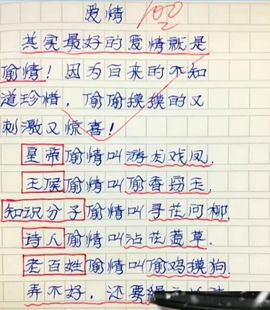 爱情
100
其实最好的爱情就是
偷情！因为自来的不知
道珍惜，偷偷摸摸的又
刺激又惊喜！
皇帝偷情叫游龙戏凤.
王侯偷情叫偷香窃玉.
知识分子偷情叫寻花问柳.
诗人偷情叫沾花惹草.
老百姓偷情叫偷鸡摸狗.
弄不好，还要